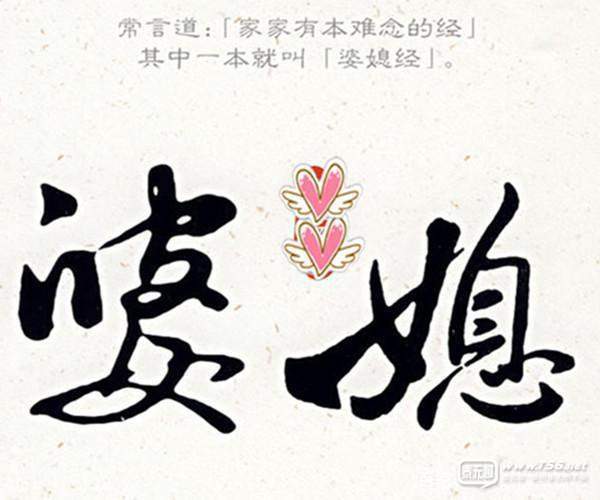 常言道:「家家有本难念的经」
其中一本就叫「婆媳经」。
婆媳
www.156.net